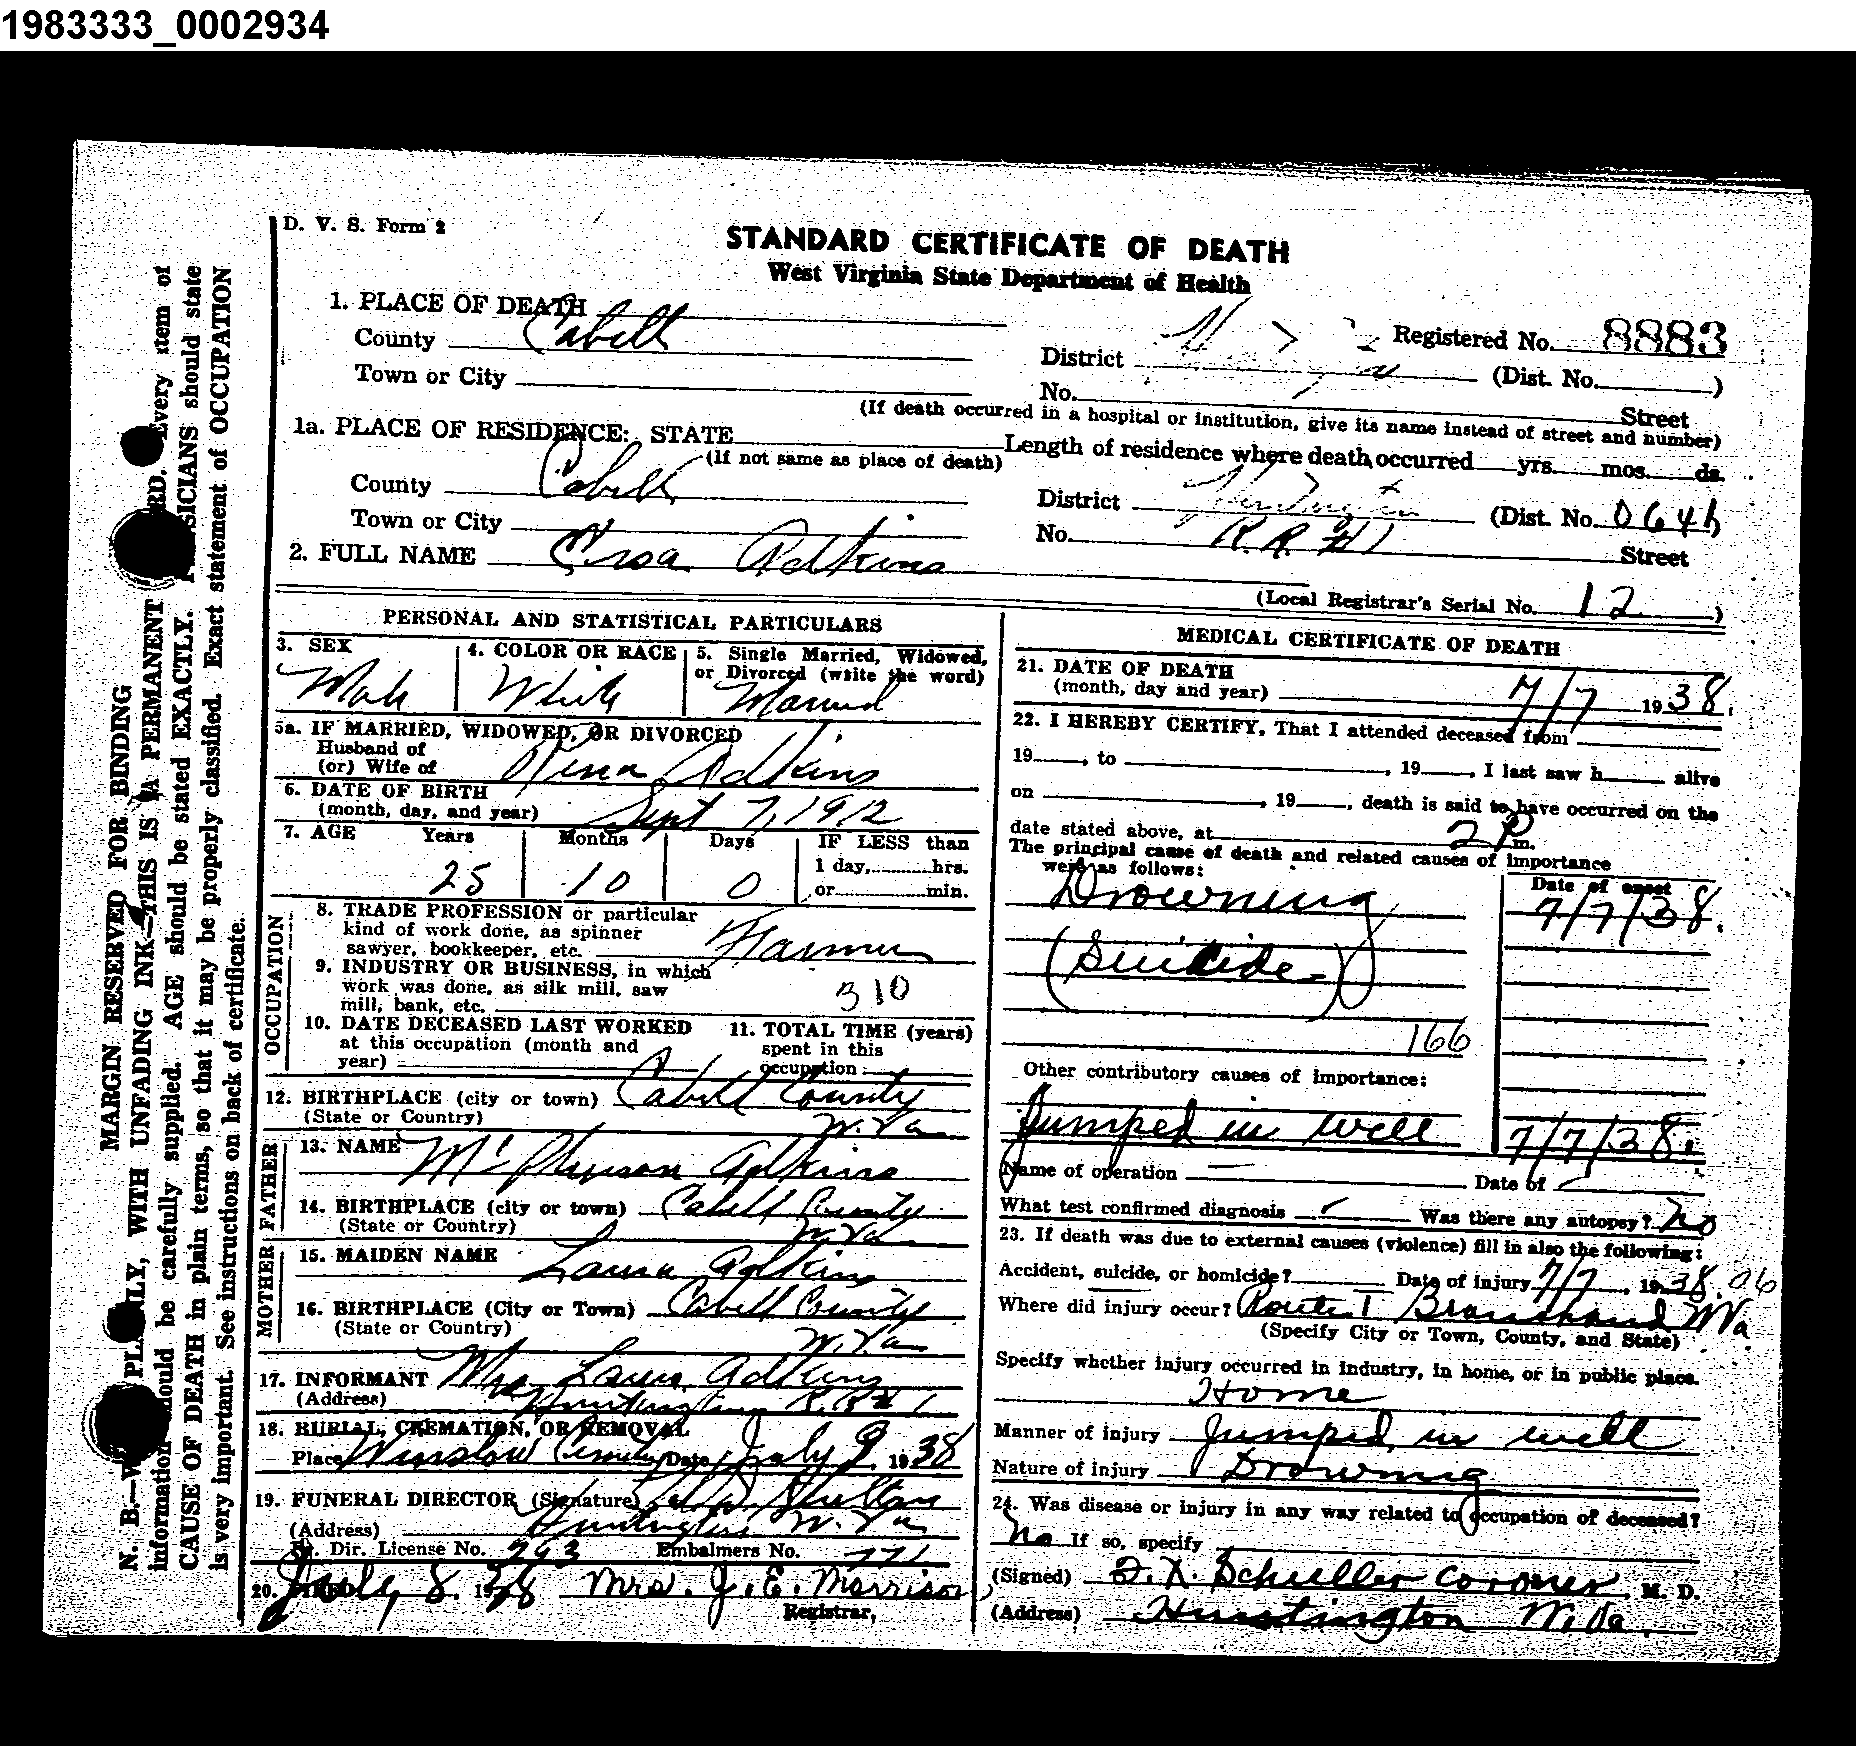 1983333_0002934
D. V. S. Form 2
STANDARD CERTIFICATE OF DEATH
West Virginia State Department of Health
1. PLACE OF DEATH
County Cabell
Registered No. 8883
District (Dist. No. )
Town or City
No. Street
(If death occurred in a hospital or institution, give its name instead of street and number)
1a. PLACE OF RESIDENCE: STATE
(If not same as place of death)
Length of residence where death occurred yrs. mos. ds.
County Cabell
District Huntington (Dist. No. 064h
Town or City
No. R.R #1 Street
2. FULL NAME Adkins
(Local Registrar's Serial No. 12 )
PERSONAL AND STATISTICAL PARTICULARS
3. SEX
Male
4. COLOR OR RACE
White
5. Single Married, Widowed,
or Divorced (write the word)
Married
5a. IF MARRIED, WIDOWED, OR DIVORCED
Husband of
(or) Wife of Adkins
6. DATE OF BIRTH
(month, day, and year) Sept 7, 1912
7. AGE Years Months Days IF LESS than
1 day, hrs.
25 10 0 or min.
OCCUPATION
8. TRADE PROFESSION or particular
kind of work done, as spinner
sawyer, bookkeeper, etc. Farmer
9. INDUSTRY OR BUSINESS, in which
work was done, as silk mill, saw
mill, bank, etc. 310
10. DATE DECEASED LAST WORKED
at this occupation (month and
year)
11. TOTAL TIME (years)
spent in this
occupation
12. BIRTHPLACE (city or town) Cabell County
(State or Country) W. Va
FATHER
13. NAME Adkins
14. BIRTHPLACE (city or town) Cabell County
(State or Country) W. Va
MOTHER
15. MAIDEN NAME Laura Adkins
16. BIRTHPLACE (City or Town) Cabell County
(State or Country) W. Va
17. INFORMANT Mrs Laura Adkins
(Address) Huntington R.R #1
18. BURIAL, CREMATION, OR REMOVAL
Place Winslow Cemetery Date July 9 1938
19. FUNERAL DIRECTOR (Signature)
(Address) Huntington W. Va
Dir. License No. 293 Embalmers No. 771
20. FILED July 8. 1938 Mrs. J. E. Morrison,
Registrar,
MEDICAL CERTIFICATE OF DEATH
21. DATE OF DEATH
(month, day and year) 7/7 1938.
22. I HEREBY CERTIFY, That I attended deceased from
19 , to , 19 , I last saw h alive
on , 19 , death is said to have occurred on the
date stated above, at 2 P m.
The principal cause of death and related causes of importance
were as follows:
Date of onset
Drowning 7/7/38.
(Suicide)
166
Other contributory causes of importance:
Jumped in well 7/7/38.
Name of operation — Date of
What test confirmed diagnosis Was there any autopsy? No
23. If death was due to external causes (violence) fill in also the following:
Accident, suicide, or homicide? Date of injury 7/7, 1938. 06
Where did injury occur? Route 1 W Va
(Specify City or Town, County, and State)
Specify whether injury occurred in industry, in home, or in public place.
Home
Manner of injury Jumped in well
Nature of injury Drowning
24. Was disease or injury in any way related to occupation of deceased?
No If so, specify
(Signed) Schuller Coroner M. D.
(Address) Huntington W. Va.
MARGIN RESERVED FOR BINDING
N. B.—WRITE PLAINLY, WITH UNFADING INK—THIS IS A PERMANENT RECORD. Every item of
information should be carefully supplied. AGE should be stated EXACTLY. PHYSICIANS should state
CAUSE OF DEATH in plain terms, so that it may be properly classified. Exact statement of OCCUPATION
is very important. See instructions on back of certificate.